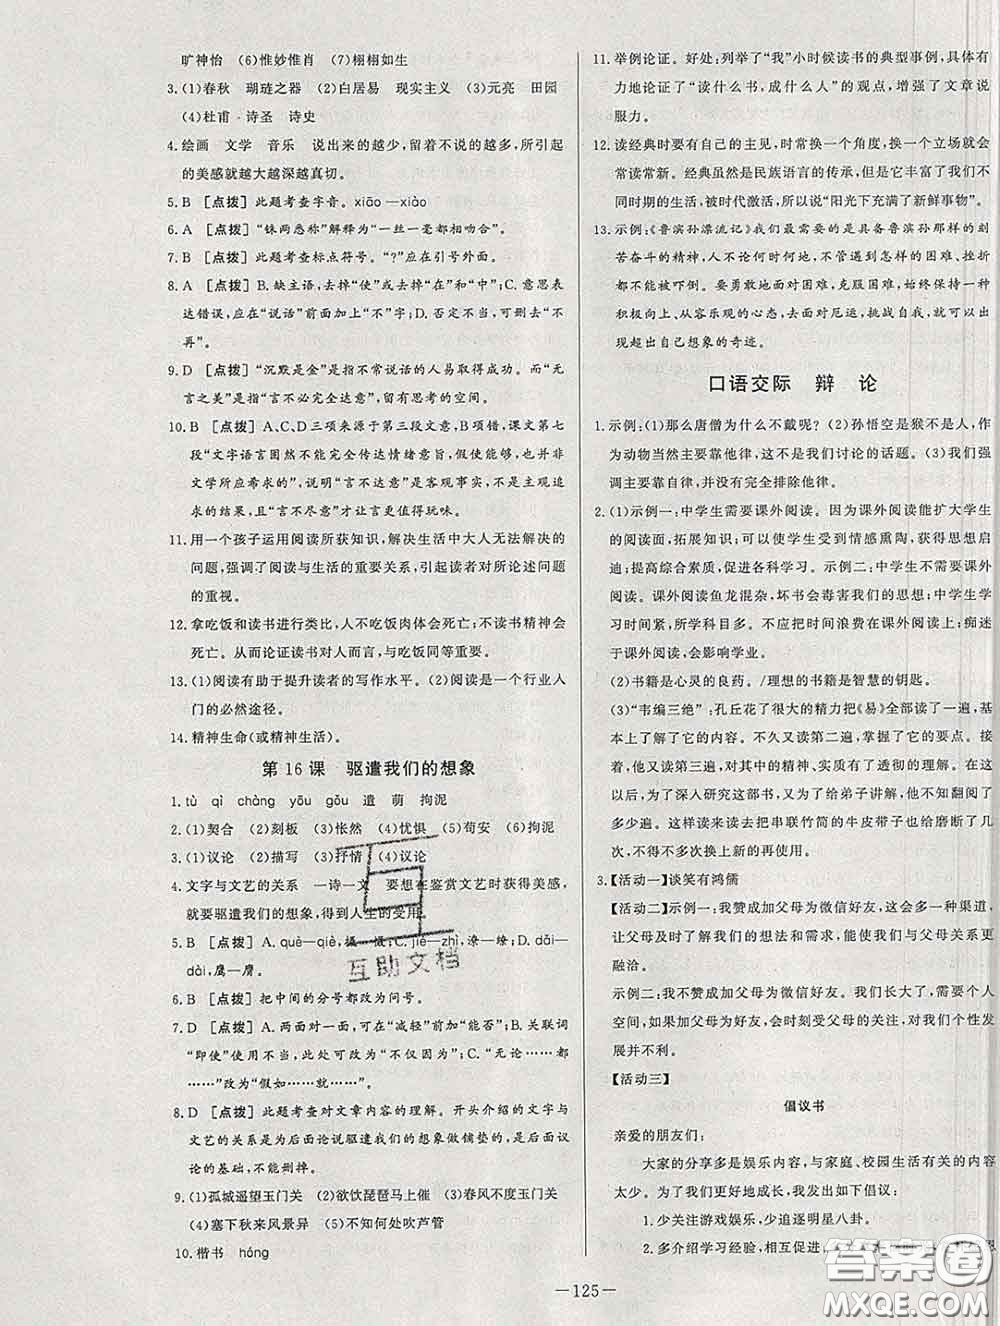 旷神怡　(6)惟妙惟肖　(7)栩栩如生
3.(1)春秋　瑚琏之器　(2)白居易　现实主义　(3)元亮　田园
(4)杜甫　诗圣　诗史
4.绘画　文学　音乐　说出来的越少,留着不说的越多,所引起
的美感就越大越深越真切。
5.B　[点拨]此题考查字音。xiāo—xiào
6.A　[点拨]“铢两悉称”解释为“一丝一毫都相吻合”。
7.B　[点拨]此题考查标点符号。“?”应在引号外面。
8.A　[点拨]B.缺主语,去掉“使”或去掉“在”和“中”;C.意思表
达错误,应在“说话”前面加上“不”字;D.否定不当,可去掉“不
再”。
9.D　[点拨]“沉默是金”是指不常说话的人易取得成功。而“无
言之美”是指“言不必完全达意”,留有思考的空间。
10.B　[点拨]A、C、D三项来源于第三段文意,B项错,课文第七
段“文字语言固然不能全部传达情绪意旨,假使能够,也并非
文学所应希求的”,说明“言不达意”是客观事实,不是主动追
求的结果,且“言不尽意”才能让文学作品更值得玩味。
11.用一个孩子运用阅读所获知识,解决生活中大人无法解决的
问题,强调了阅读与生活的重要关系,引起读者对所论述问题
的重视。
12.拿吃饭和读书进行类比,人不吃饭肉体会死亡;不读书精神会
死亡。从而论证读书对人而言,与吃饭同等重要。
13.(1)阅读有助于提升读者的写作水平。(2)阅读是一个行业人
门的必然途径。
14.精神生命(或精神生活)。
第 16 课　驱遣我们的想象
1.tù　qì　chàng　yōu　gǒu　遣　萌　拘泥
2.(1)契合　(2)刻板　(3)怅然　(4)忧惧　(5)苟安　(6)拘泥
3.(1)议论　(2)描写　(3)抒情　(4)议论
4.文字与文艺的关系　一诗一文　要想在鉴赏文艺时获得美感,
就要驱遣我们的想象,得到人生的受用。
5.B　[点拨]A.què—qiè,摄—慑;C.jié—zhì,潦—缭;D.dǎi—
dài,鹰—膺。
6.B　[点拨]把中间的分号都改为问号。
7.D　[点拨]A.两面对一面,可在“减轻”前加“能否”;B.关联词
“即使”使用不当,此处可改为“不仅因为”;C.“无论……都
……”改为“假如……就……”。
8.D　[点拨]此题考查对文章内容的理解。开头介绍的文字与
文艺的关系是为后面论说驱遣我们的想象做铺垫的,是后面议
论的基础,不能删掉。
9.(1)孤城遥望玉门关　(2)欲饮琵琶马上催　(3)春风不度玉门关
(4)塞下秋来风景异　(5)不知何处吹芦管
10.楷书　hóng
11.举例论证。好处:列举了“我”小时候读书的典型事例,具体有
力地论证了“读什么书,成什么人”的观点,增强了文章说
服力。
12.读经典时要有自己的主见,时常换一个角度,换一个立场就会
常读常新。经典虽然是民族语言的传承,但是它丰富了我们不
同时期的生活,被时代激活,所以说“阳光下充满了新鲜事物”。
13.示例:《鲁滨孙漂流记》我们最需要的是具备鲁滨孙那样的刻
苦奋斗的精神,人不论何时何地,不管遇到怎样的困难、挫折
都不能被吓倒。要勇敢地面对困难,克服困难,始终保持一种
积极向上、从容乐观的心态,去面对厄运,挑战自我,就可以出
现超出自己想象的奇迹。
口语交际　辩　论
1.示例:(1)那么唐僧为什么不戴呢?(2)孙悟空是猴不是人,作
为动物当然主要靠他律,这不是我们讨论的话题。(3)我们强
调主要靠自律,并没有完全排除他律。
2.(1)示例一:中学生需要课外阅读。因为课外阅读能扩大学生
的阅读面,拓展知识;可以使学生受到情感熏陶,获得思想启
迪;提高综合素质,促进各科学习。示例二:中学生不需要课外
阅读。课外阅读鱼龙混杂,坏书会毒害我们的思想;中学生学
习时间紧,所学科目多。不应把时间浪费在课外阅读上;痴迷
于课外阅读,会影响学业。
(2)书籍是心灵的良药。/理想的书籍是智慧的钥匙。
(3)“韦编三绝”:孔丘花了很大的精力把《易》全部读了一遍,基
本上了解了内容。不久又读第二遍,掌握了它的要点。接着,
又读第三遍,对其中的精神、实质有了透彻的理解。在这
以后,为了深入研究这部书,又为了给弟子讲解,他不知翻阅了
多少遍。这样读来读去把串联竹简的牛皮带子也给磨断了几
次,不得不多次换上新的再使用。
3.【活动一】谈笑有鸿儒
【活动二】示例一:我赞成加父母为微信好友,这会多一种渠道,
让父母及时了解我们的想法和需求,能使我们与父母关系更
融洽。
示例二:我不赞成加父母为微信好友。我们长大了,需要个人
空间,如果加父母为好友,会时刻受父母的关注,对我们个性发
展并不利。
【活动三】
倡议书
亲爱的朋友们:
大家的分享多是娱乐内容,与家庭、校园生活有关的内容
太少。为了我们更好地成长,我发出如下倡议:
1.少关注游戏娱乐,少追逐明星八卦。
2.多介绍学习经验,相互促进,
—125—
互助文档
答案圈
MXQE.COM